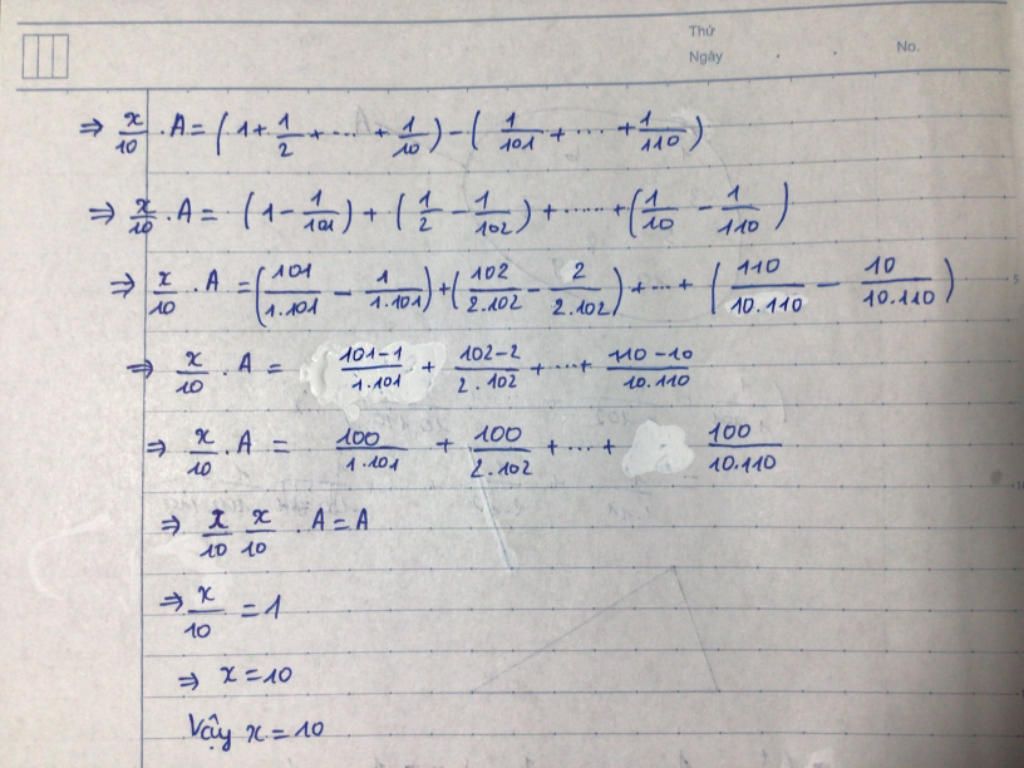 Thứ
Ngày . . No.
⇒ x/10 . A = (1 + 1/2 + ... + 1/10) - (1/101 + .... + 1/110)
⇒ x/10 . A = (1 - 1/101) + (1/2 - 1/102) + ...... + (1/10 - 1/110)
⇒ x/10 . A = (101/1.101 - 1/1.101) + (102/2.102 - 2/2.102) + ... + (110/10.110 - 10/10.110)
⇒ x/10 . A = 101-1/1.101 + 102-2/2.102 + ... + 110-10/10.110
⇒ x/10 . A = 100/1.101 + 100/2.102 + ... + 100/10.110
⇒ x/10 x/10 . A = A
⇒ x/10 = 1
⇒ x = 10
Vậy x = 10